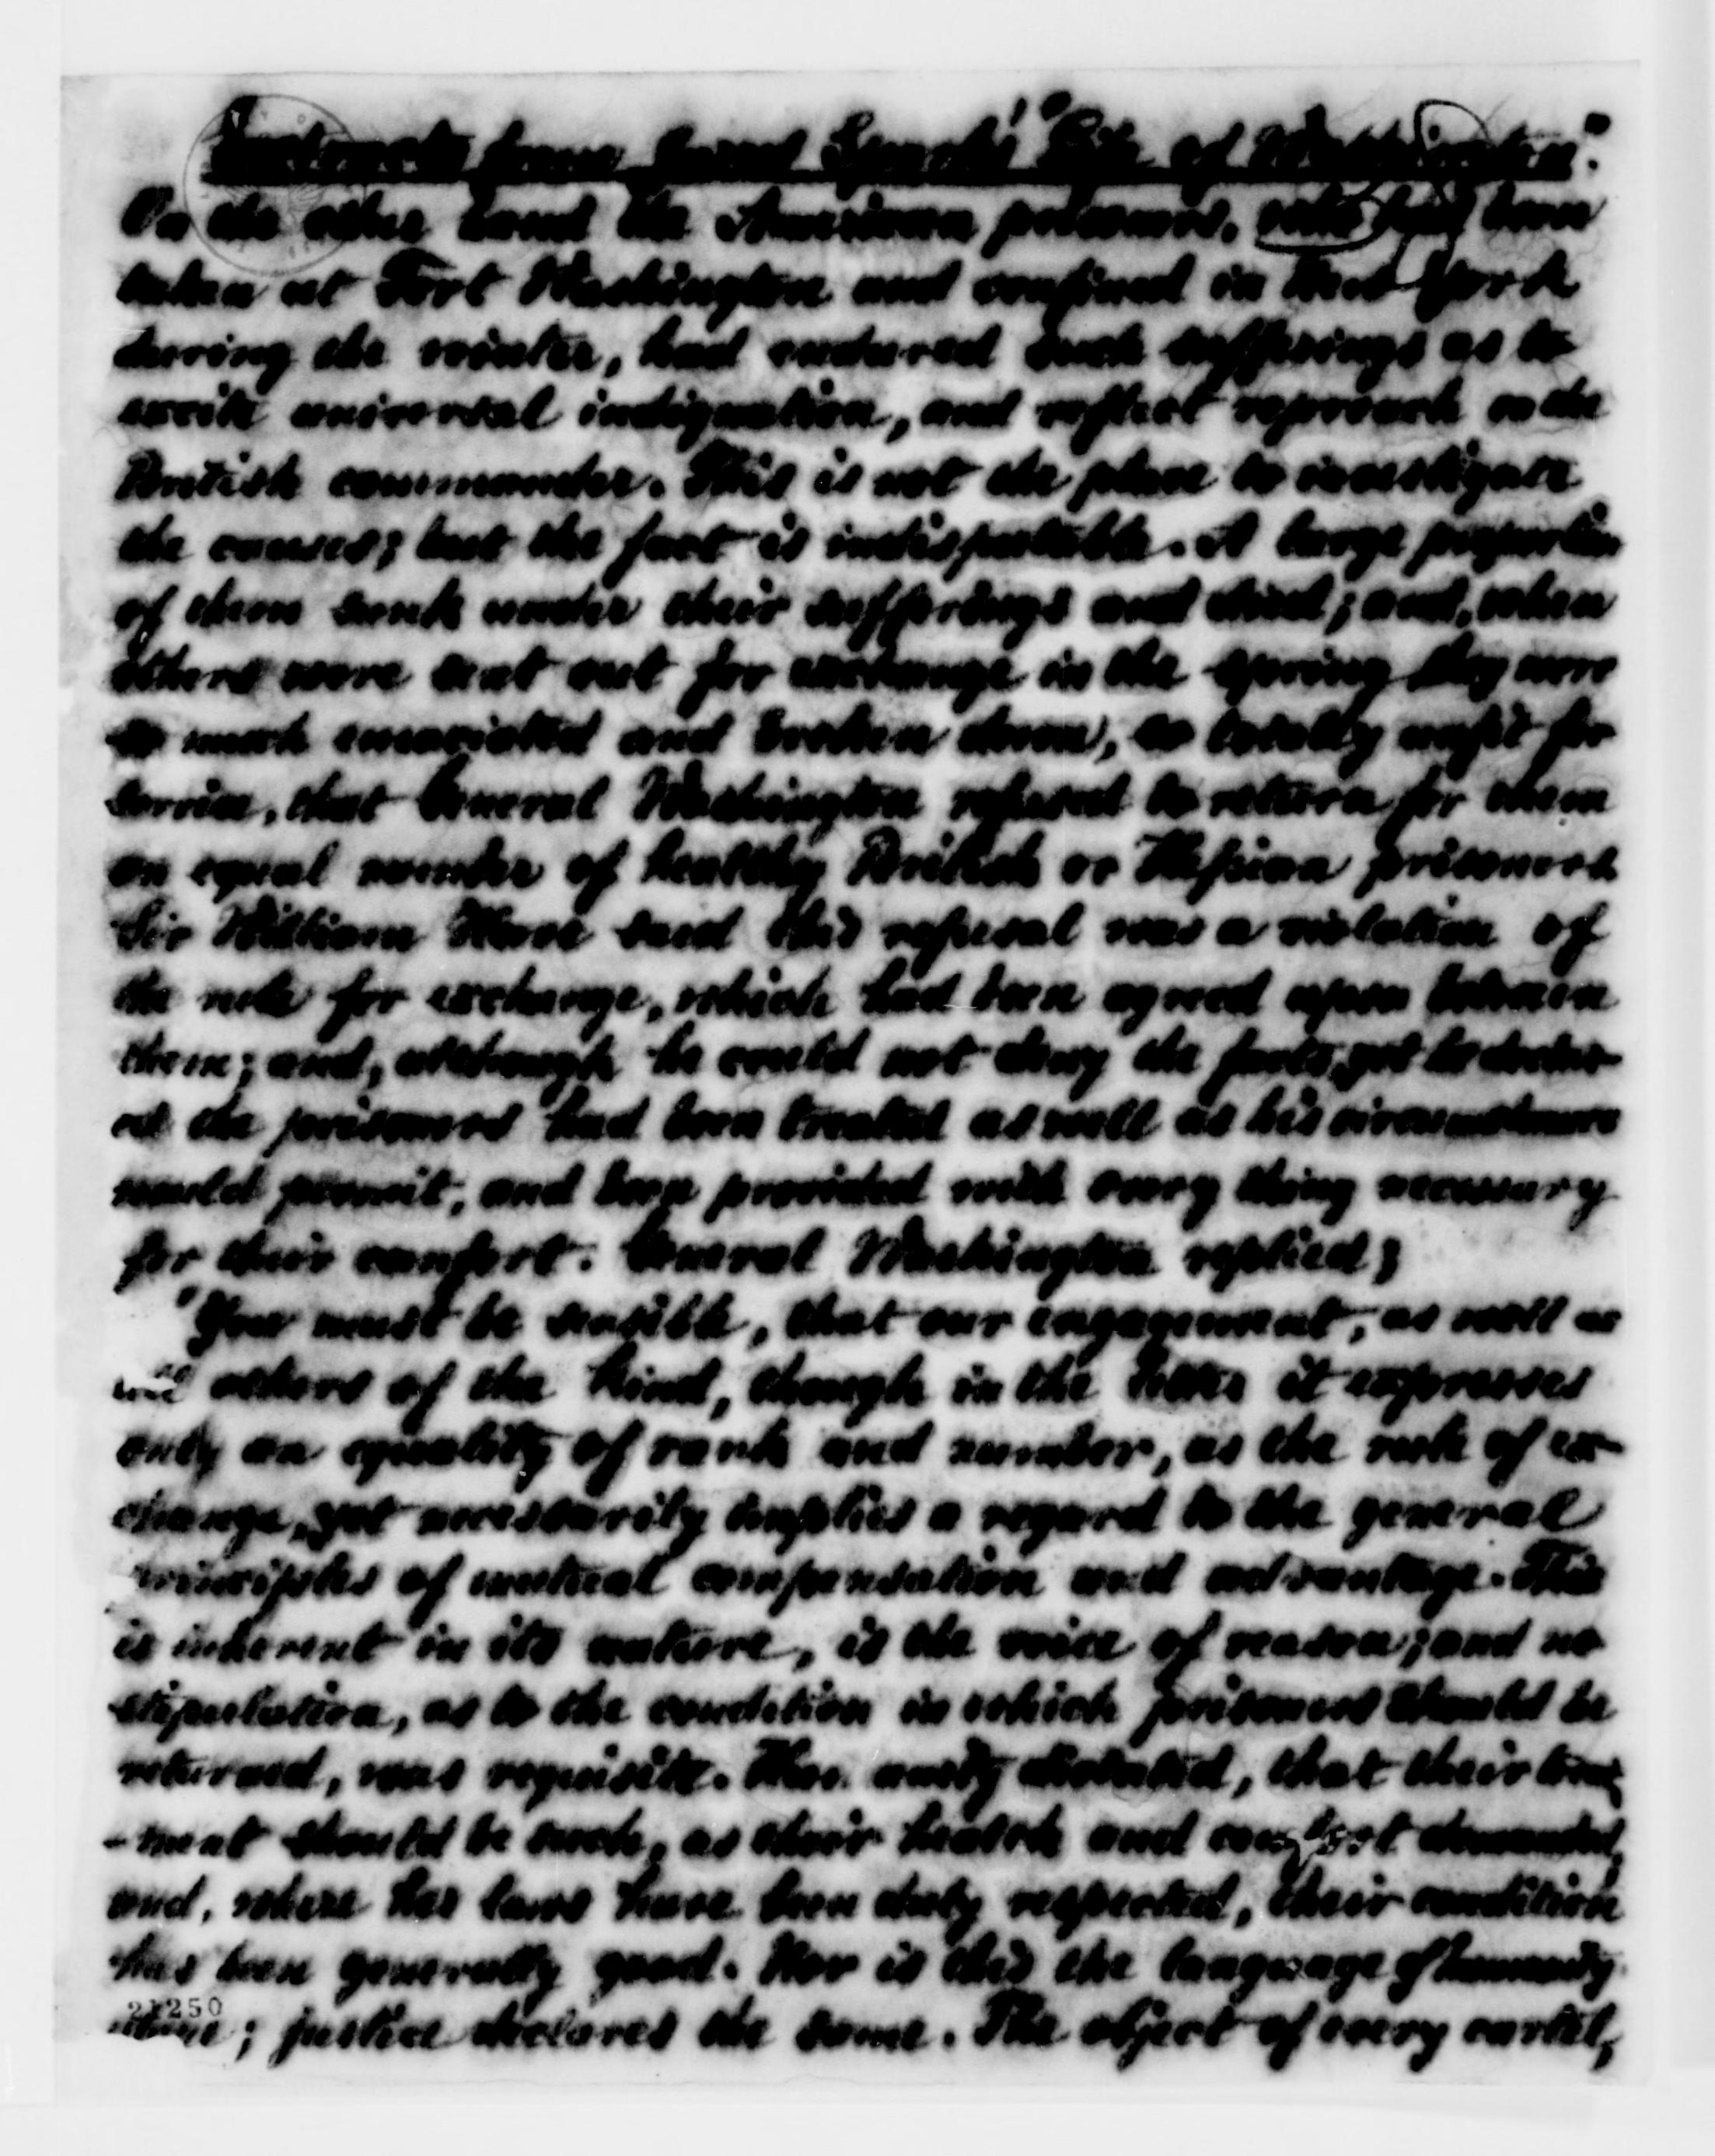 Extracts from Jared Sparks' "Life of Washington".
On the other hand the American prisoners, who had been
taken at Fort Washington and confined in New York
during the winter, had endured such sufferings as to
excite universal indignation, and reflect reproach on the
British commander. This is not the place to investigate
the causes; but the fact is indisputable. A large proportion
of them sunk under their sufferings and died; and, when
others were sent out for exchange in the spring they were
so much emaciated and broken down, so totally unfit for
service, that General Washington refused to return for them
an equal number of healthy British or Hessian prisoners.
Sir William Howe said this refusal was a violation of
the rule for exchange, which had been agreed upon between
them; and, although he could not deny the facts, yet he declar-
ed the prisoners had been treated as well as his circumstances
would permit, and been provided with every thing necessary
for their comfort. General Washington replied;
"You must be sensible, that our engagement, as well as
all others of the kind, though in the letter it expresses
only an equality of rank and number, as the rule of ex-
change, yet necessarily implies a regard to the general
principles of mutual compensation and advantage. This
is inherent in its nature, is the voice of reason; and no
stipulation, as to the condition in which prisoners should be
returned, was requisite. Humanity dictated, that their treat-
-ment should be such, as their health and comfort demanded,
and, where her laws have been duly respected, their condition
has been generally good. Nor is this the language of humanity
alone; justice declares the same. The object of every cartel,
21250